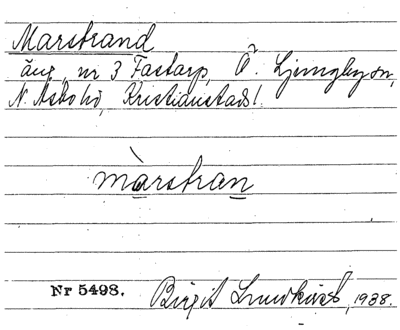 Marstrand
äng, nr 3 Fastarp, Ö. Ljungby sn,
N. Åsbo hd, Kristianstads l.
màrstran
Nr 5498. Birgit Lundkvist, 1938.